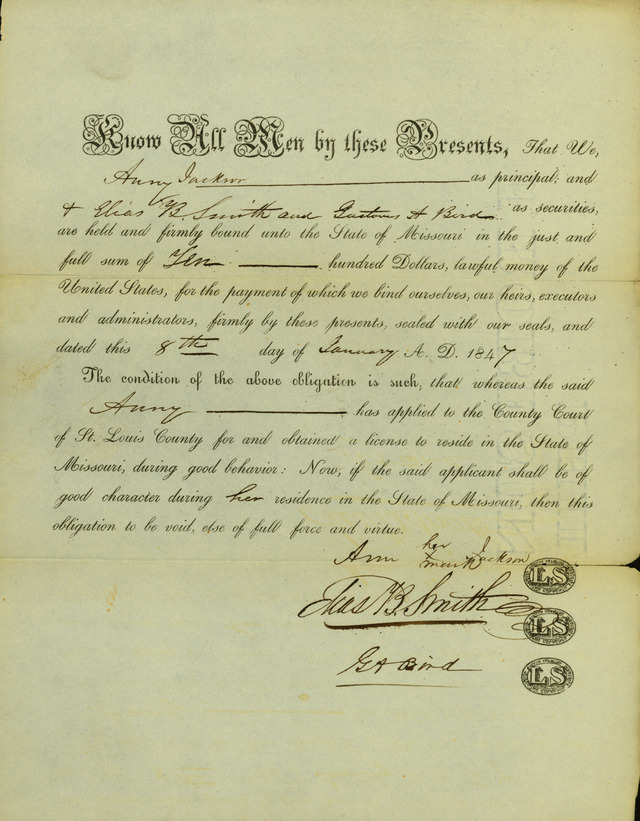 Know All Men by these Presents, That We,
Anny Jackson as principal; and
& Elias B. Smith and Gustavus A Bird as securities,
are held and firmly bound unto the State of Missouri in the just and
full sum of Ten hundred Dollars, lawful money of the
United States, for the payment of which we bind ourselves, our heirs, executors
and administrators, firmly by these presents, sealed with our seals, and
dated this 8th day of January A. D. 1847
The condition of the above obligation is such, that whereas the said
Anny has applied to the County Court
of St. Louis County for and obtained a license to reside in the State of
Missouri, during good behavior: Now, if the said applicant shall be of
good character during her residence in the State of Missouri, then this
obligation to be void, else of full force and virtue.
Ann her Jackson
mark
LS
Elias B. Smith
LS
G A Bird
LS